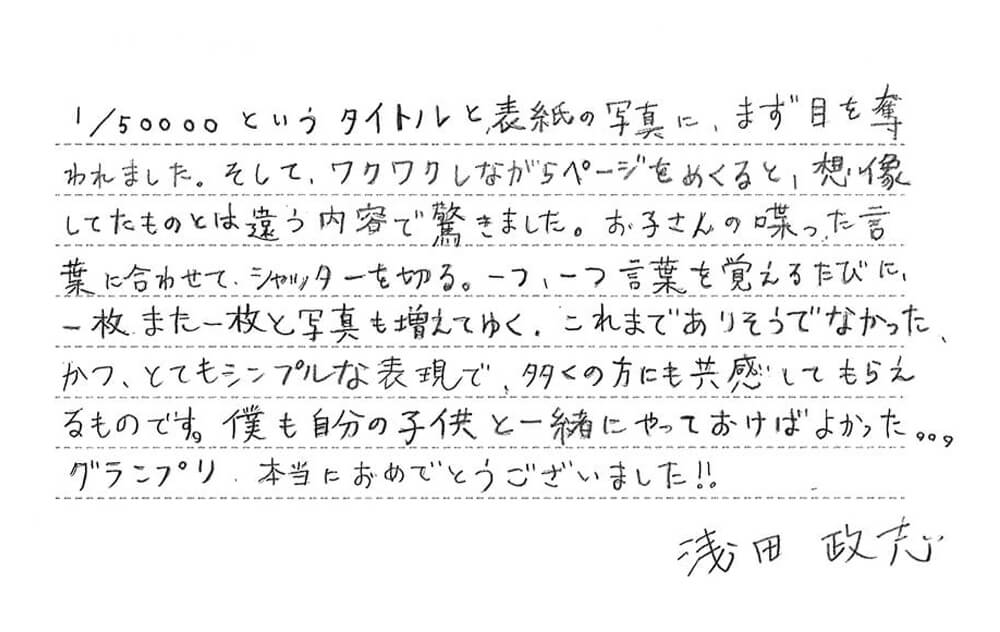 1/50000というタイトルと、表紙の写真に、まず目を奪
われました。そして、ワクワクしながらページをめくると、想像
してたものとは違う内容で驚きました。お子さんの喋った言
葉に合わせて、シャッターを切る。一つ、一つ言葉を覚えるたびに、
一枚また一枚と写真も増えてゆく。これまでありそうでなかった、
かつ、とてもシンプルな表現で、多くの方にも共感してもらえ
るものです。僕も自分の子供と一緒にやっておけばよかった。。。
グランプリ、本当におめでとうございました!!
浅田 政志